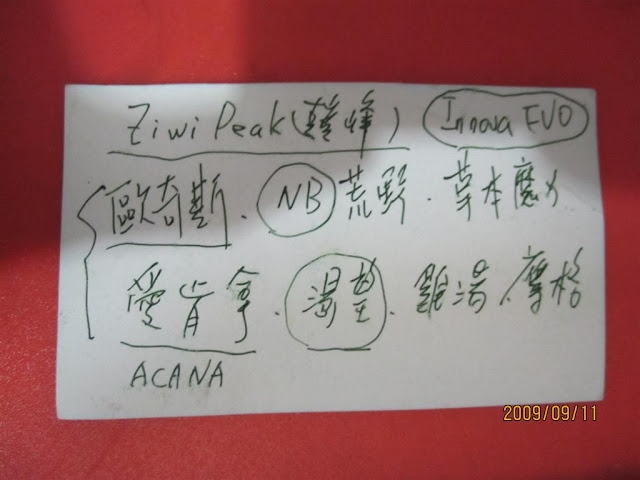 Ziwi Peak(巔峰) Innova EVO
歐奇斯.NB荒野.草本魔力
愛肯拿.渴望.雞湯.摩格
ACANA
2009/09/11